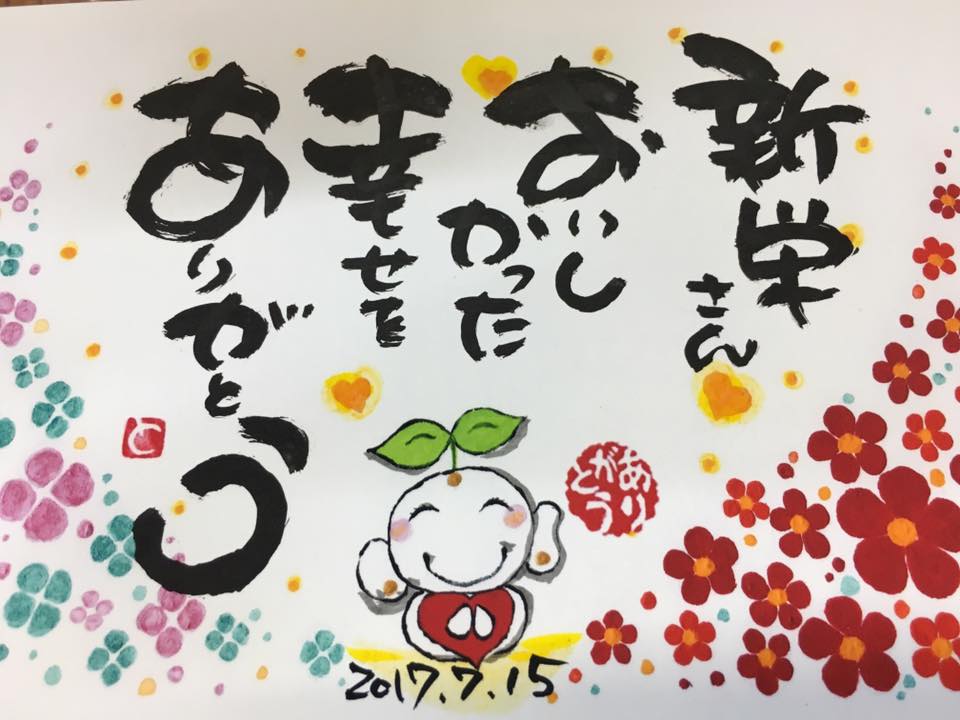 新栄さん
おいしかった
幸せを
ありがとう
と
ありがとう
2017.7.15